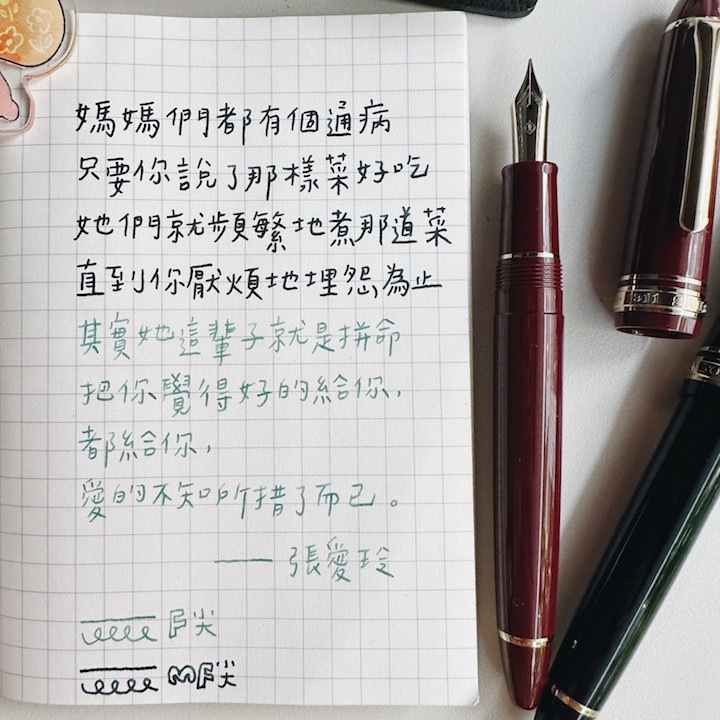 媽媽們都有個通病
只要你說了那樣菜好吃
她們就頻繁地煮那道菜
直到你厭煩地埋怨為止
其實她這輩子就是拼命
把你覺得好的給你,
都給你,
愛的不知所措了而已。
—— 張愛玲
F尖
MF尖